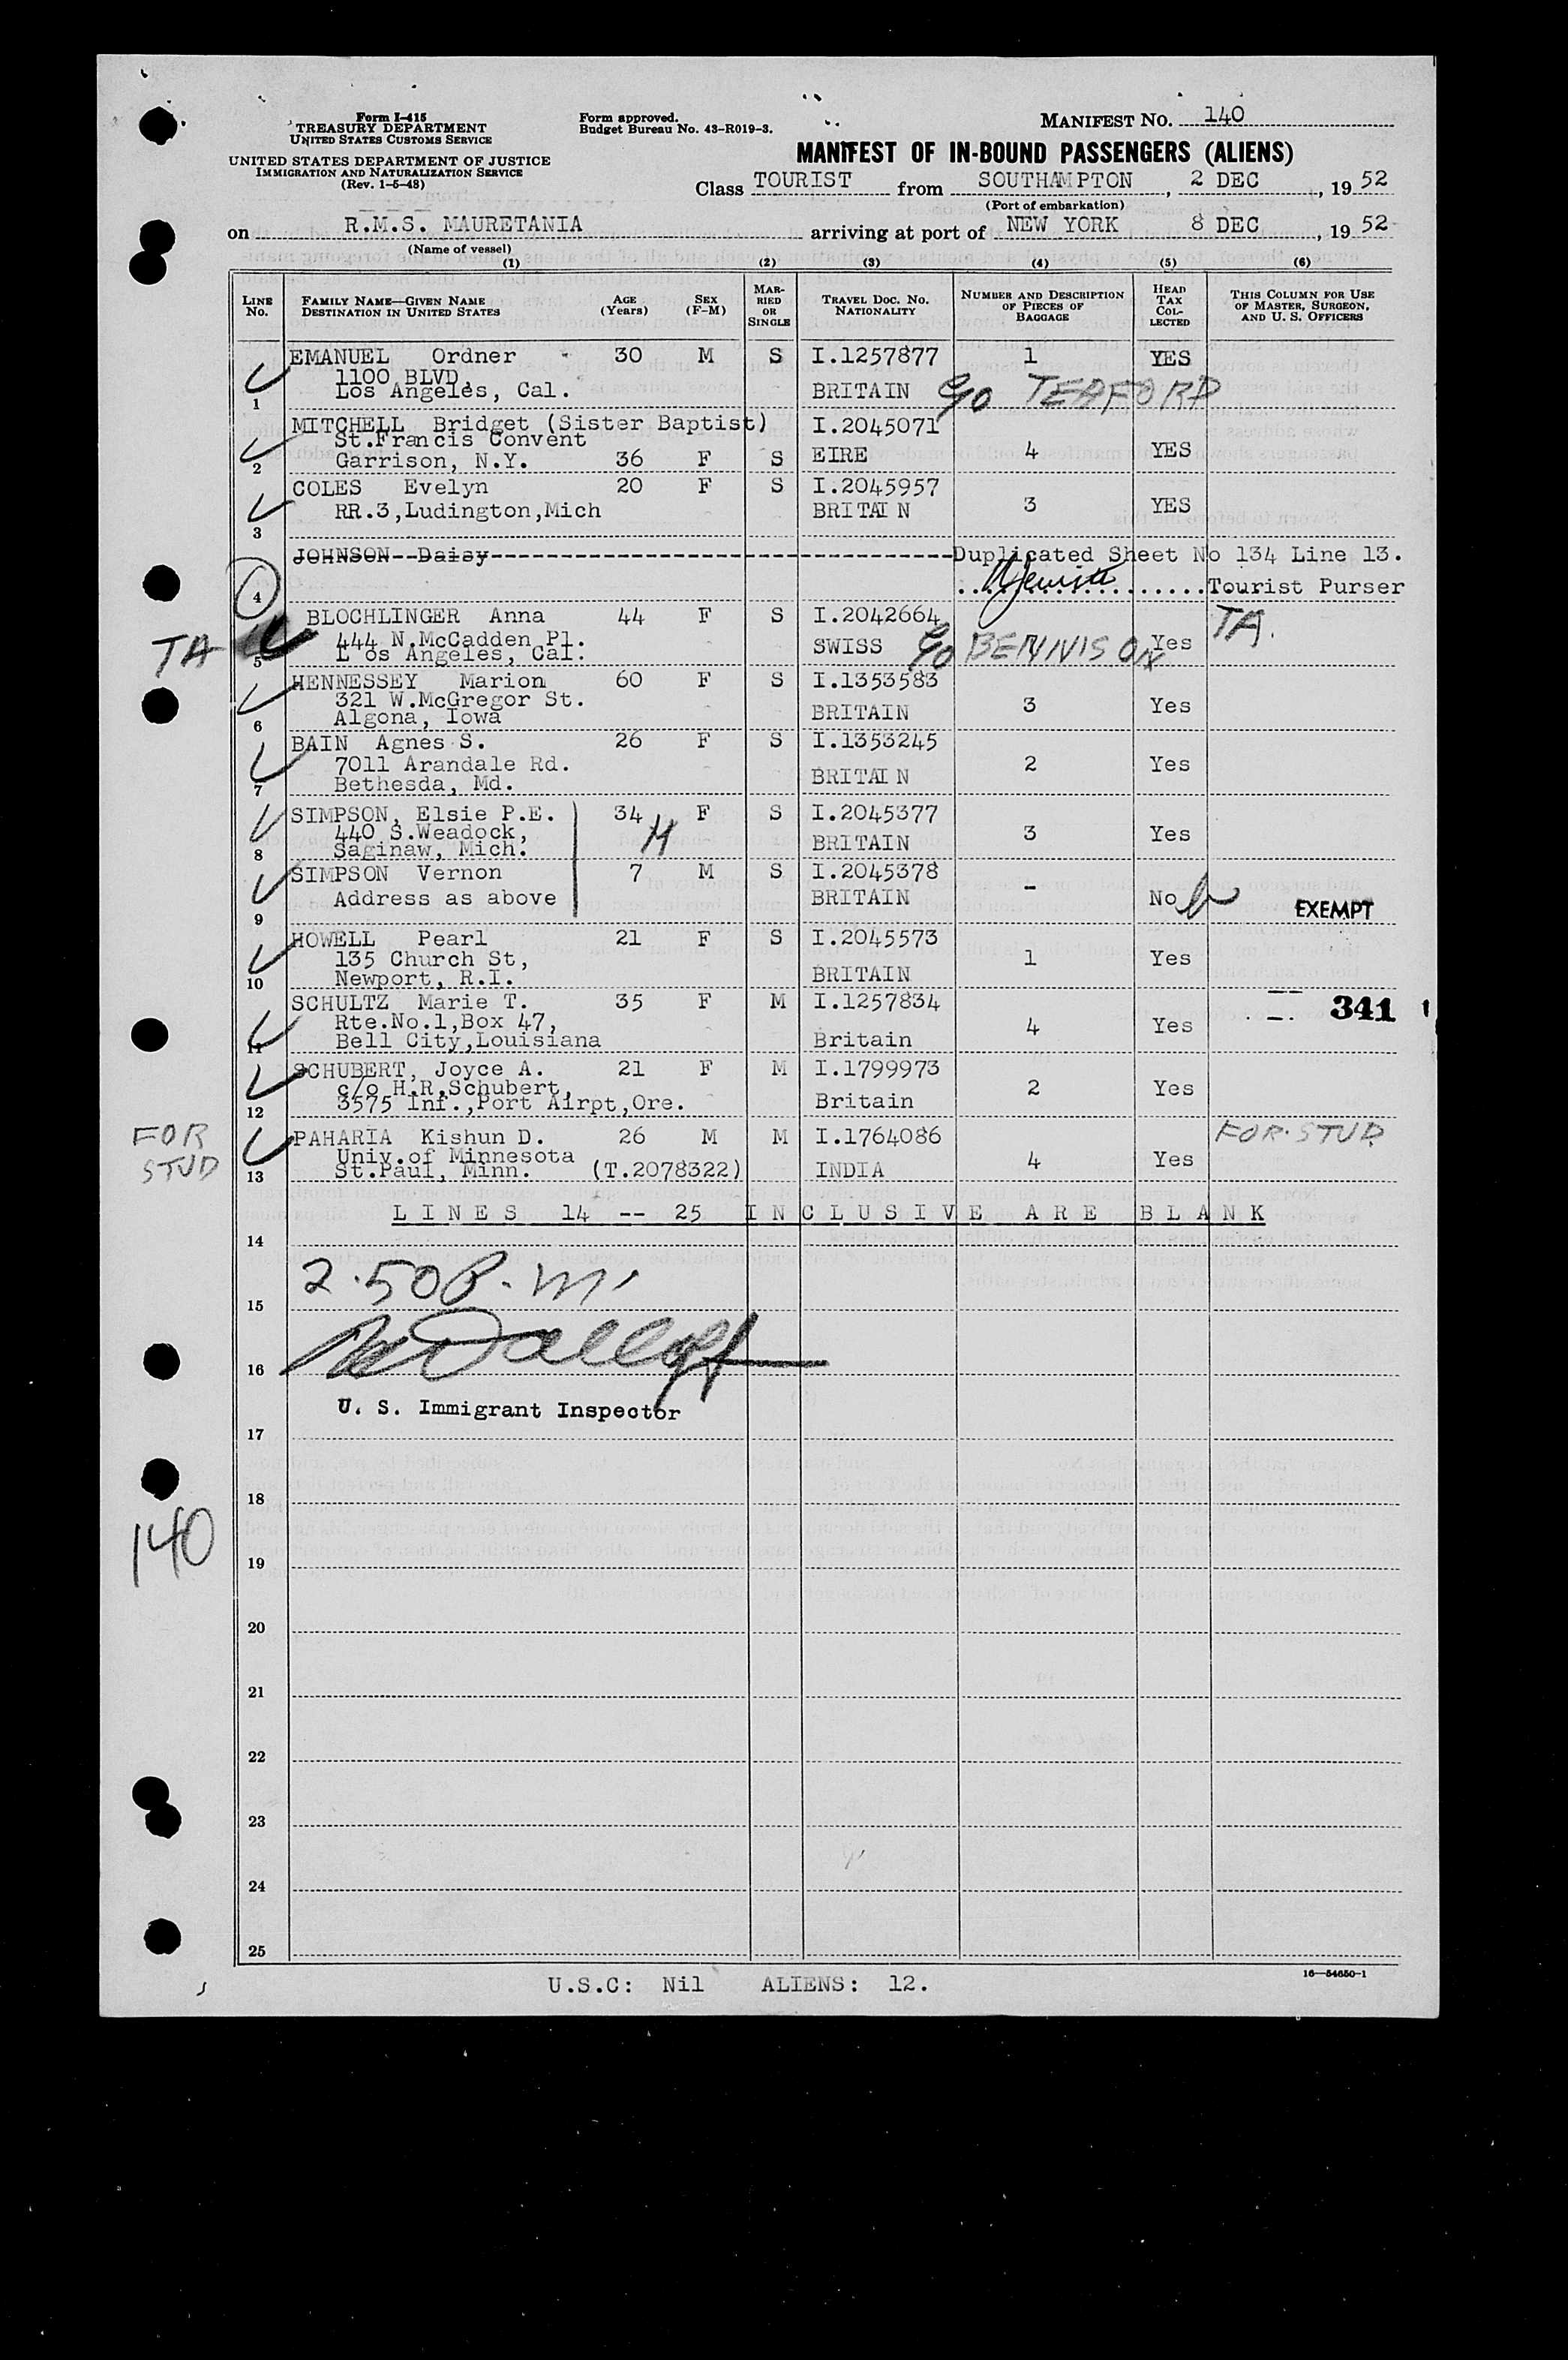 Form I-415
TREASURY DEPARTMENT
UNITED STATES CUSTOMS SERVICE
UNITED STATES DEPARTMENT OF JUSTICE
IMMIGRATION AND NATURALIZATION SERVICE
(Rev. 1-5-48)
Form approved.
Budget Bureau No. 43-R019-3.
MANIFEST NO. 140
MANIFEST OF IN-BOUND PASSENGERS (ALIENS)
Class TOURIST from SOUTHAMPTON, 2 DEC, 1952
(Port of embarkation)
on R.M.S. MAURETANIA arriving at port of NEW YORK 8 DEC, 1952
(Name of vessel)
(1) (2) (3) (4) (5) (6)
LINE NO. FAMILY NAME—GIVEN NAME DESTINATION IN UNITED STATES AGE (Years) SEX (F-M) MARRIED OR SINGLE TRAVEL DOC. NO. NATIONALITY NUMBER AND DESCRIPTION OF PIECES OF BAGGAGE HEAD TAX COLLECTED THIS COLUMN FOR USE OF MASTER, SURGEON, AND U. S. OFFICERS
EMANUEL Ordner 30 M S I.1257877 1 YES
1100 BLVD,
1 Los Angeles, Cal. BRITAIN c/o TEAFORD
MITCHELL Bridget (Sister Baptist) I.2045071
St.Francis Convent
2 Garrison, N.Y. 36 F S EIRE 4 YES
COLES Evelyn 20 F S I.2045957
RR.3,Ludington,Mich BRITAIN 3 YES
3
JOHNSON--Daisy Duplicated Sheet No 134 Line 13.
4 Tourist Purser
BLOCHLINGER Anna 44 F S I.2042664
TA 444 N.McCadden Pl. SWISS c/o BENNISON Yes TA.
5 L os Angeles, Cal.
HENNESSEY Marion 60 F S I.1353583
321 W.McGregor St. 3 Yes
6 Algona, Iowa BRITAIN
BAIN Agnes S. 26 F S I.1353245
7011 Arandale Rd. 2 Yes
7 Bethesda, Md. BRITAIN
SIMPSON, Elsie P.E. 34 F S I.2045377
440 S.Weadock, M 3 Yes
8 Saginaw, Mich. BRITAIN
SIMPSON Vernon 7 M S I.2045378 -
Address as above BRITAIN No EXEMPT
9
HOWELL Pearl 21 F S I.2045573
135 Church St, 1 Yes
10 Newport, R.I. BRITAIN
SCHULTZ Marie T. 35 F M I.1257834 341
Rte.No.1,Box 47, 4 Yes
11 Bell City,Louisiana Britain
SCHUBERT, Joyce A. 21 F M I.1799973
c/o H.R.Schubert, 2 Yes
12 3575 Inf.,Port Airpt,Ore. Britain
FOR STUD PAHARIA Kishun D. 26 M M I.1764086 FOR. STUD
Univ.of Minnesota 4 Yes
13 St.Paul, Minn. (T.2078322) INDIA
LINES 14 -- 25 INCLUSIVE ARE BLANK
14
2.50 P.M.
15
16
U. S. Immigrant Inspector
17
18
140
19
20
21
22
23
24
25
U.S.C: Nil ALIENS: 12.
16—54650-1